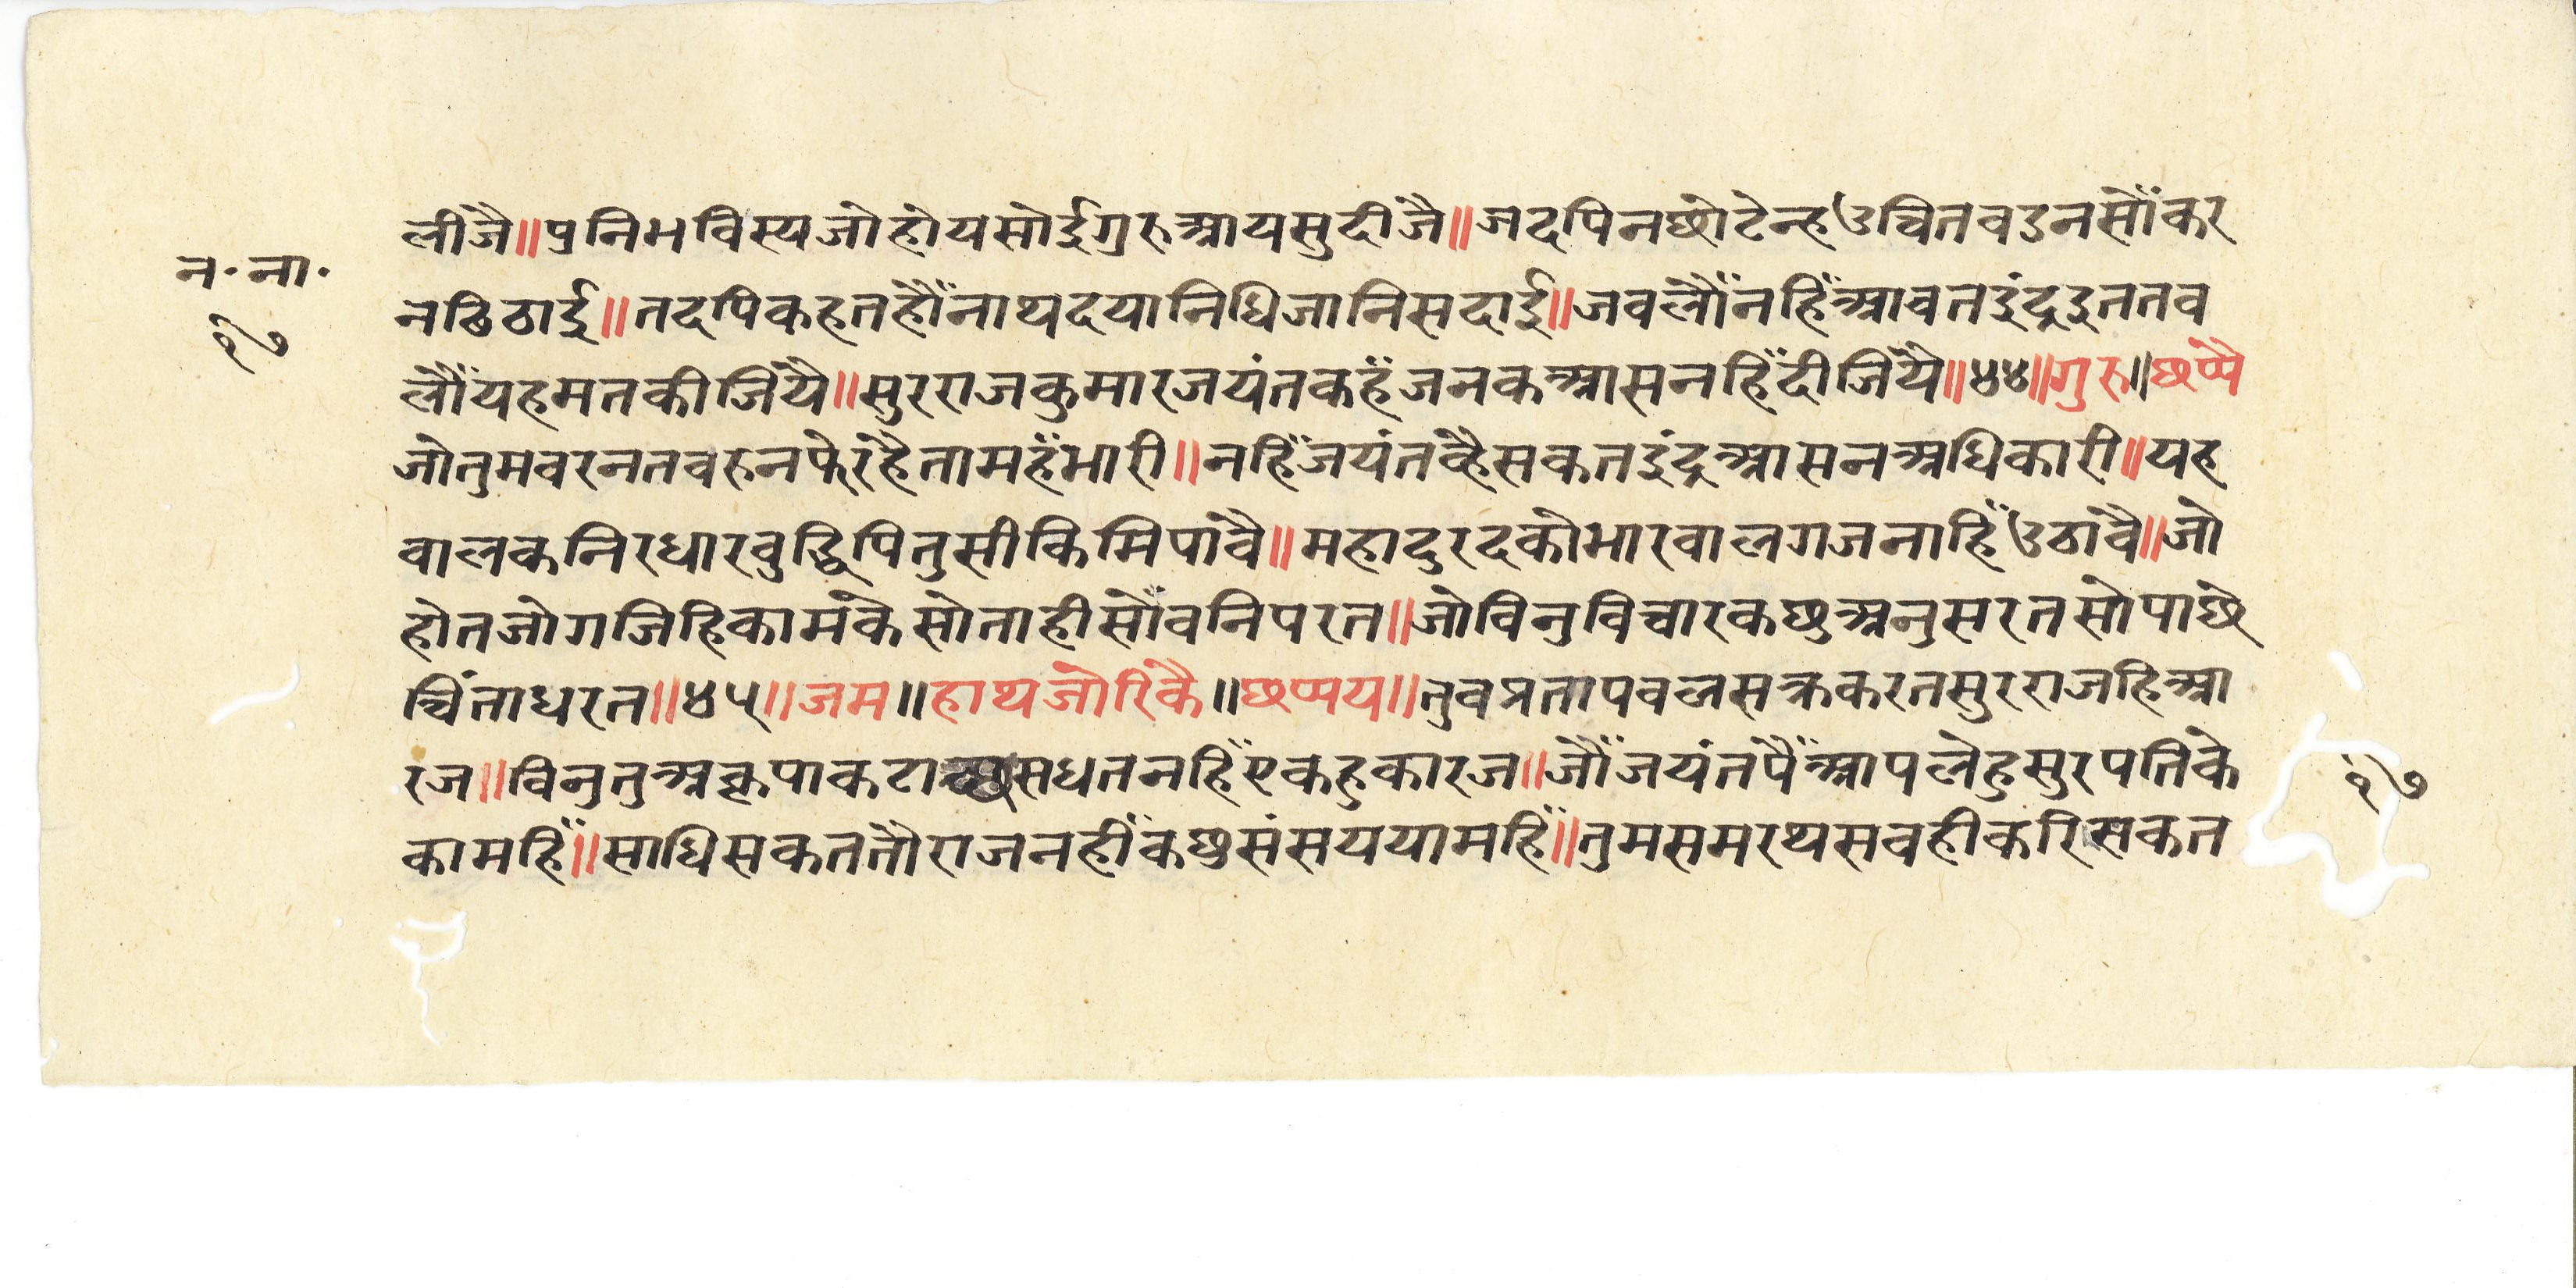 लीजै॥पुनिभविस्यजोहोयसोईगुरुआयसुदीजै॥जदपिनछोटेन्हउचितवडनसौँकर
न·ना·
नढिठाई॥तदपिकहतहौँनाथदयानिधिजानिसदाई॥जवलौँनहिँआवतइंद्रइततव
१७
लौँयहमतकीजियै॥सुरराजकुमारजयंतकहँजनकआसनहिँदीजियै॥४४॥गुरु॥छप्पै
जोतुमवरनतवरुनफेरहैतामहँभारी॥नहिँजयंतव्हैसकतइंद्रआसनअधिकारी॥यह
वालकनिरधारवुद्धिपितुसीकिमिपावै॥महादुरदकोभारवालगजनाहिँउठावै॥जो
होतजोगजिहिकामकेसोताहीसौँवनिपरत॥जोविनुविचारकछुअनुसरतसोपाछे
चिंताधरत॥४५॥जम॥हाथजोरिकै॥छप्पय॥तुवप्रतापवलसक्रकरतसुरराजहिआ
रज॥विनुतुअकृपाकटाछसधतनहिँएकहुकारज॥जौँजयंतपैँआपलेहुसुरपतिके
१७
कामहिँ॥साधिसकततौराजनहीँकछुसंसययामहिँ॥तुमसमरथसवहीकरिसकत